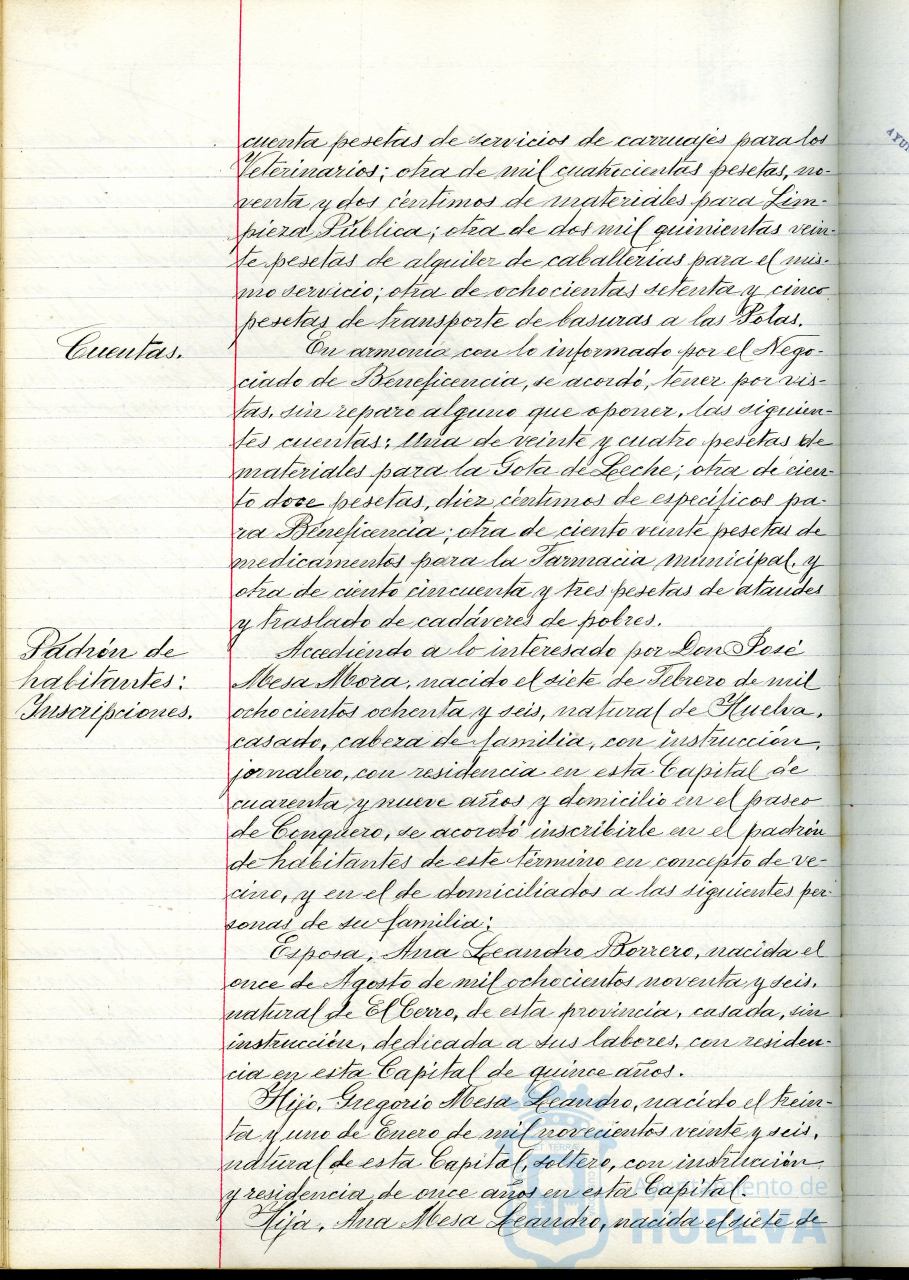 cuenta pesetas de servicios de carruajes para los
Veterinarios; otra de mil cuatrocientas pesetas, no-
venta y dos céntimos de materiales para Lim-
pieza Pública; otra de dos mil quinientas vein-
te pesetas de alquiler de caballerias para el mis-
mo servicio; otra de ochocientas setenta y cinco
pesetas de transporte de basuras a las Potas.
Cuentas.
En armonía con lo informado por el Nego-
ciado de Beneficencia, se acordó, tener por vis-
tas, sin reparo alguno que oponer, las siguien-
tes cuentas: Una de veinte y cuatro pesetas de
materiales para la Gota de Leche; otra de cien-
to doce pesetas, diez céntimos de específicos pa-
ra Beneficencia; otra de ciento veinte pesetas de
medicamentos para la Farmacia municipal, y
otra de ciento cincuenta y tres pesetas de ataudes
y traslado de cadáveres de pobres.
Padrón de
habitantes:
Inscripciones.
Accediendo a lo interesado por Don José
Mesa Mora, nacido el siete de Febrero de mil
ochocientos ochenta y seis, natural de Huelva,
casado, cabeza de familia, con instrucción,
jornalero, con residencia en esta Capital de
cuarenta y nueve años y domicilio en el paseo
de Conquero, se acordó inscribirle en el padrón
de habitantes de este término en concepto de ve-
cino, y en el de domiciliados a las siguientes per-
sonas de su familia:
Esposa, Ana Leandro Borrero, nacida el
once de Agosto de mil ochocientos noventa y seis,
natural de El Cerro, de esta provincia, casada, sin
instrucción, dedicada a sus labores, con residen-
cia en esta Capital de quince años.
Hijo, Gregorio Mesa Leandro, nacido el trein-
ta y uno de Enero de mil novecientos veinte y seis,
natural de esta Capital, soltero, con instrucción
y residencia de once años en esta Capital.
Hija, Ana Mesa Leandro, nacida el siete de
Ayuntamiento de
HUELVA